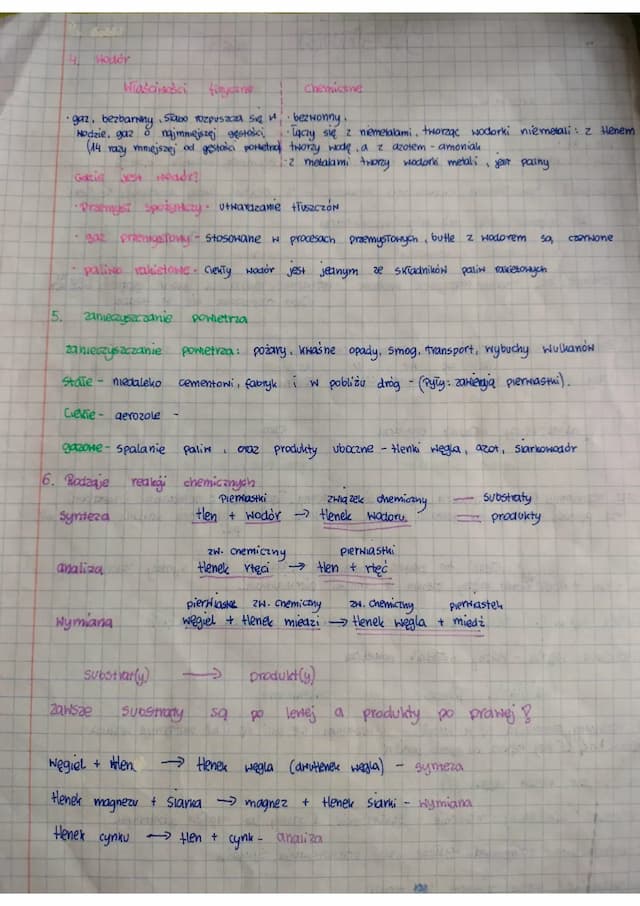 4. Wodór
Właściwości fizyczne
Chemiczne
· gaz, bezbarwny, słabo rozpuszcza się w
wodzie, gaz o najmniejszej gęstości
(14 razy mniejszej od gęstości powietrza)
· bezwonny,
· łączy się z niemetalami, tworząc wodorki niemetali: z tlenem
tworzy wodę, a z azotem - amoniak
· z metalami tworzy wodorki metali, jest palny
Gdzie jest wodór?
· Przemysł spożywczy - utwardzanie tłuszczów
· gaz przemysłowy - stosowane w procesach przemysłowych, butle z wodorem są czerwone
· paliwo rakietowe - ciekły wodór jest jednym ze składników paliw rakietowych
5. zanieczyszczanie powietrza
zanieczyszczanie powietrza: pożary, kwaśne opady, smog, transport, wybuchy wulkanów
Stałe - niedaleko cementowi, fabryk i w pobliżu dróg - (pyły: zawierają pierwiastki).
Ciekłe - aerozole -
gazowe - spalanie paliw, oraz produkty uboczne - tlenki węgla, azot, siarkowodór
6. Rodzaje reakcji chemicznych
pierwiastki związek chemiczny — substraty
synteza tlen + wodór → tlenek wodoru = produkty
zw. chemiczny pierwiastki
analiza tlenek rtęci → tlen + rtęć
pierwiastek zw. chemiczny zw. chemiczny pierwiastek
wymiana węgiel + tlenek miedzi → tlenek węgla + miedź
substrat(y) → produkt(y)
zawsze substraty są po lewej a produkty po prawej!
węgiel + tlen → tlenek węgla (dwutlenek węgla) - synteza
tlenek magnezu + siarka → magnez + tlenek siarki - wymiana
tlenek cynku → tlen + cynk - analiza